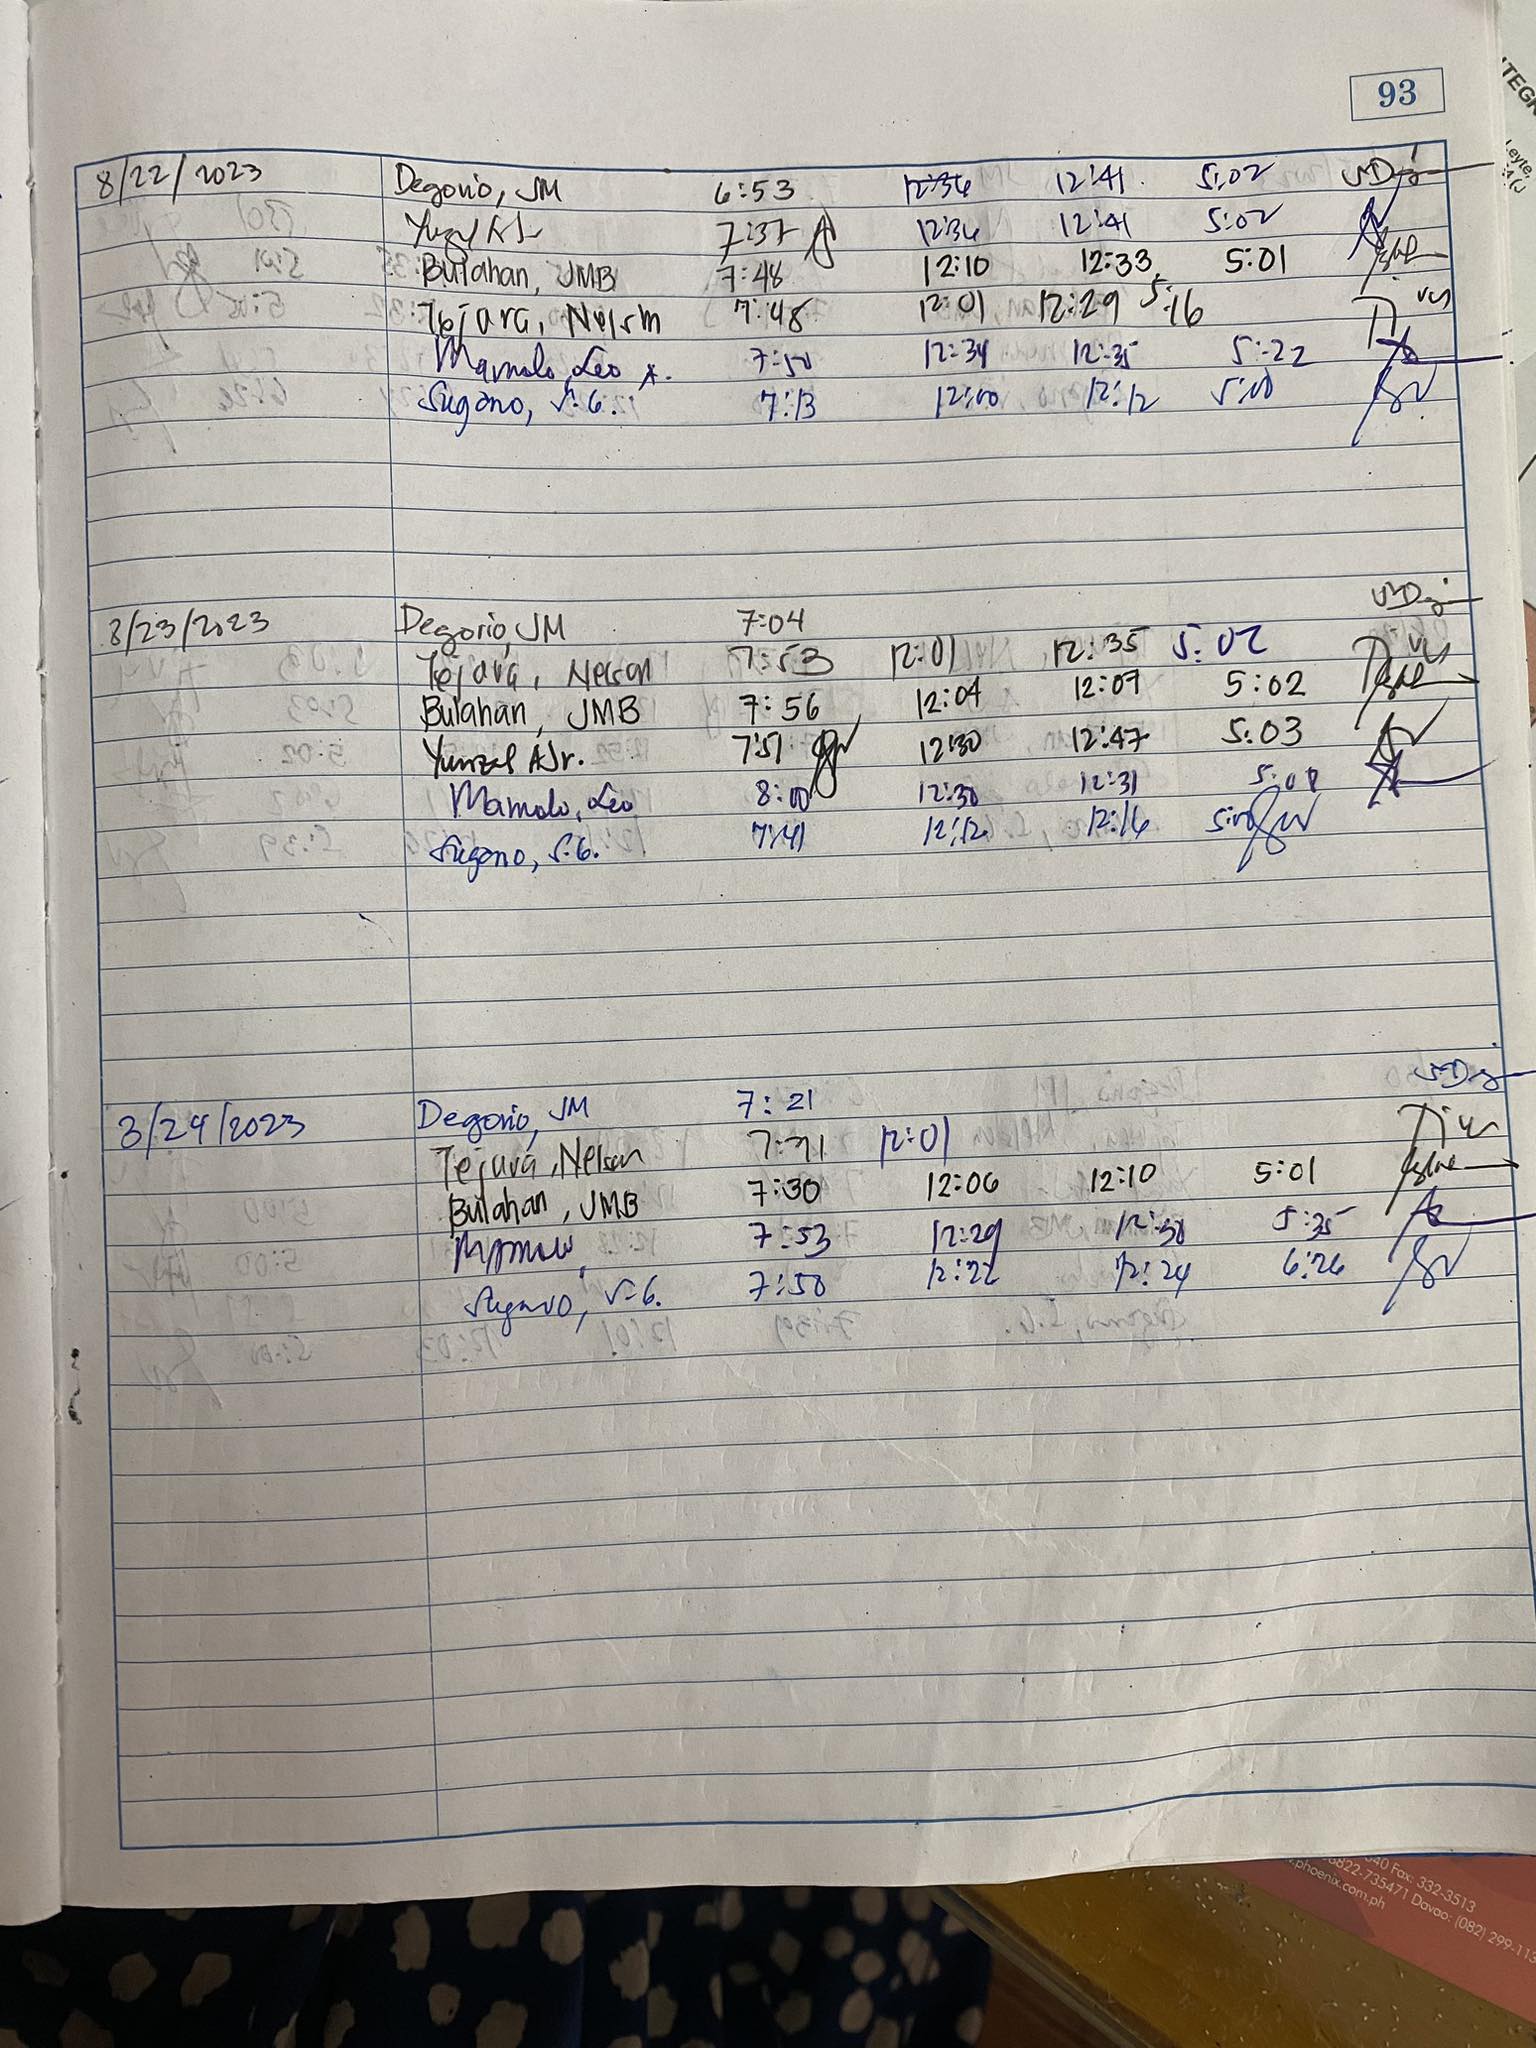 93
8/22/2023 Degorio, JM 6:53 12:36 12:41 5:02
7:37 12:36 12:41 5:02
Bulahan, JMB 7:48 12:10 12:33 5:01
Tejara, Nelson 7:48 12:01 12:29 5:16
Mamolo, Leo A. 7:50 12:34 12:35 5:22
Sugano, S.G. 7:13 12:00 12:12 5:00
8/23/2023 Degorio, JM 7:04
Tejara, Nelson 7:53 12:01 12:35 5:02
Bulahan, JMB 7:56 12:04 12:07 5:02
Yunzal A Jr. 7:57 12:30 12:47 5:03
Mamolo, Leo 8:00 12:30 12:31
Sugano, S.G. 7:41 12:12 12:16
8/24/2023 Degorio, JM 7:21
Tejara, Nelson 12:01
Bulahan, JMB 7:30 12:06 12:10 5:01
7:53 12:29 12:30 5:35
Sugano, S.G. 7:50 12:22 12:24 6:26
40 Fax: 332-3513
8822-735471 Davao: (082) 299-113
phoenix.com.ph